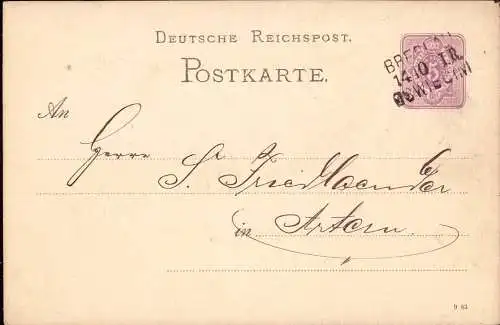 DEUTSCHE REICHSPOST.
POSTKARTE.
BRESLAU
14 10 I.R.
OSWIECIM
An
Herrn
S. Friedlaender
in Artern
9 83